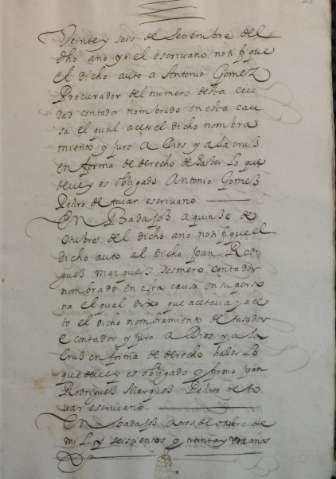 Veinte y seis de setiembre del
dho año yo el escrivano notifique
el dicho auto a Antonio Gomez
Procurador del numero desta ciu
contador nombrado en esta cau
sa el qual aceto el dicho nombra
miento y juro a Dios y a la cruz
en forma de derecho de haser lo que
deve y es obligado Antonio Gomes
Pedro de escrivano
En Badajoz a quinse de
otubre del dicho año notifique el
dicho auto al dicho Joan Rodri
gues Marques sesmero contador
nombrado en esta causa en su perso
na el qual dixo que acetava y ace
to el dicho nombramiento de tasador
e contador y juro a Dios y a la
cruz en forma de derecho haser lo
que deve y es obligado y firmo Joan
Rodrigues Marques Pedro de to
var escrivano
En Badajoz de otubre de
mil y seiscientos y treinta y